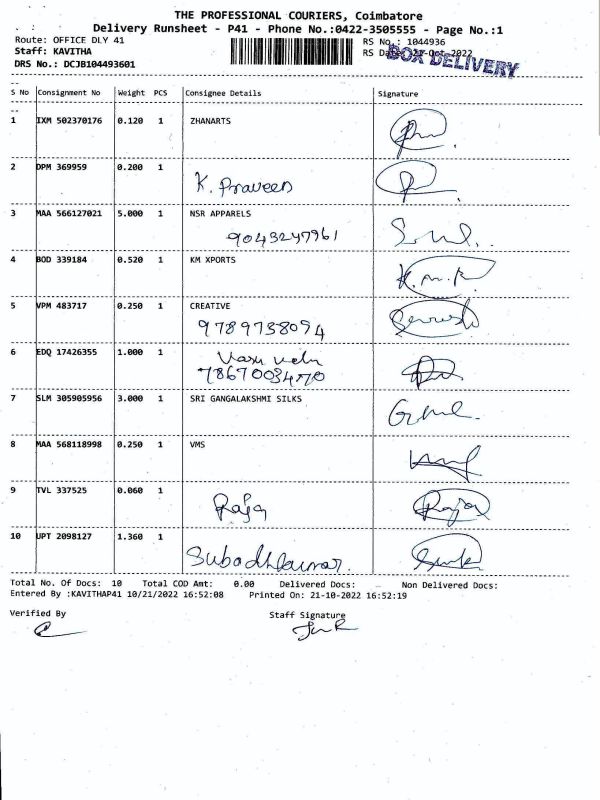 THE PROFESSIONAL COURIERS, Coimbatore
Delivery Runsheet - P41 - Phone No.:0422-3505555 - Page No.:1
Route: OFFICE DLY 41 RS No.: 1044936
Staff: KAVITHA RS Date: 21-Oct-2022
BOX DELIVERY
DRS No.: DCJB104493601
S No Consignment No Weight PCS Consignee Details Signature
1 IXM 502370176 0.120 1 ZHANARTS
2 DPM 369959 0.200 1
K. Praveen
3 MAA 566127021 5.000 1 NSR APPARELS
9043247961
4 BOD 339184 0.520 1 KM XPORTS K.M.R
5 VPM 483717 0.250 1 CREATIVE
9789738094
6 EDQ 17426355 1.000 1
7867003470
7 SLM 305905956 3.000 1 SRI GANGALAKSHMI SILKS
8 MAA 568118998 0.250 1 VMS
9 TVL 337525 0.060 1
Raja Raja
10 UPT 2098127 1.360 1
Subadhkumar
Total No. Of Docs: 10 Total COD Amt: 0.00 Delivered Docs: Non Delivered Docs:
Entered By :KAVITHAP41 10/21/2022 16:52:08 Printed On: 21-10-2022 16:52:19
Verified By Staff Signature